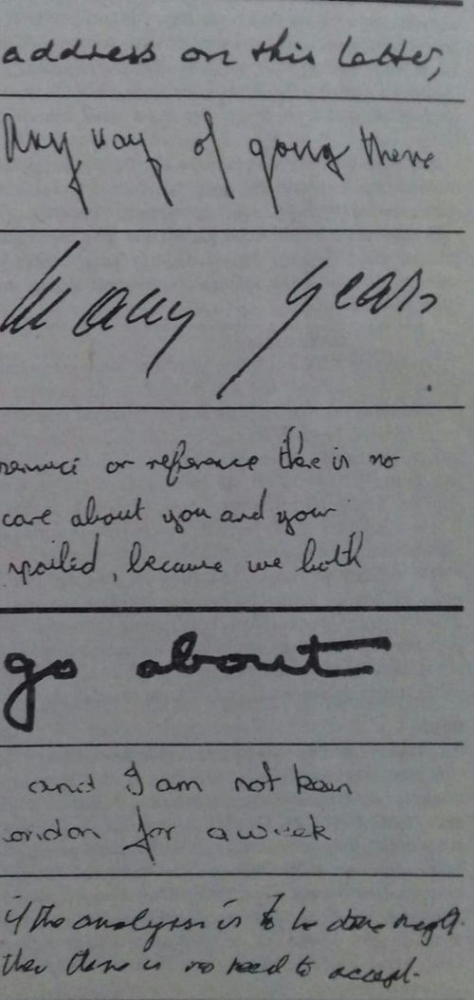 address on this letter,
Any way of going there
Many years
or reference there is no
care about you and your
spoiled, because we both
go about
and I am not keen
ondon for a week
if the analysis is to be done
then there is no need to accept.